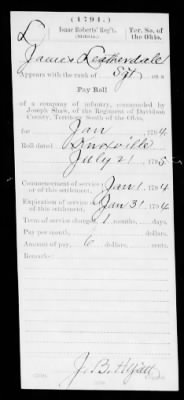 (1794.)
L
Isaac Roberts' Reg't.
(MILITIA.)
Ter. So. of
the Ohio.
James Leatherdale
Appears with the rank of Sgt. on a
Pay Roll
of a company of infantry, commanded by
Joseph Shaw, of the Regiment of Davidson
County, Territory South of the Ohio,
for Jan, 1794
Roll dated Knoxville
July 21, 1795
Commencement of service or of this settlement, Jan 1, 1794
Expiration of service or of this settlement, Jan 31, 1794
Term of service charged, 1 months, days.
Pay per month, dollars, cents.
Amount of pay, 6 dollars, cents.
Remarks:
J. B.